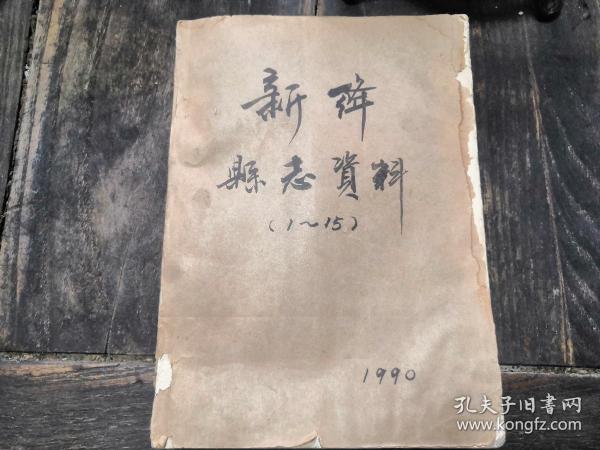 新绛
縣志資料
（1～15）
1990
孔夫子旧書网
www.kongfz.com